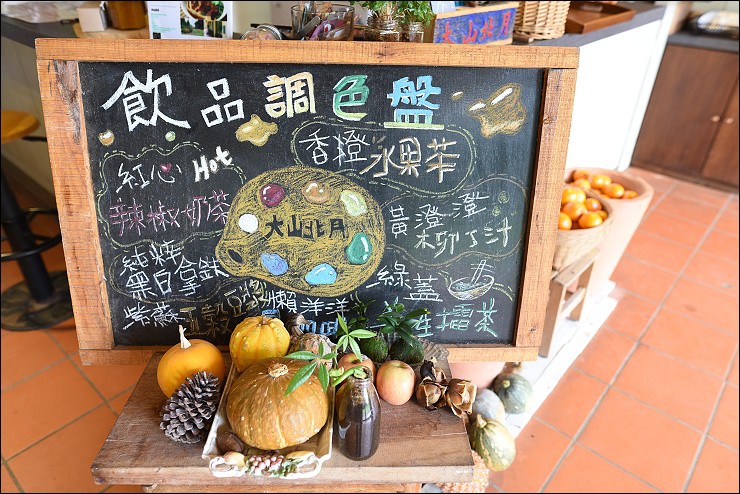 大山北月
飲品調色盤
紅心 Hot
辣椒奶茶
純粹
黑白拿鐵
紫蘇
五穀豆漿
懶洋洋
大山北月
香橙水果茶
黃澄澄
柳丁汁
綠蓋
擂茶